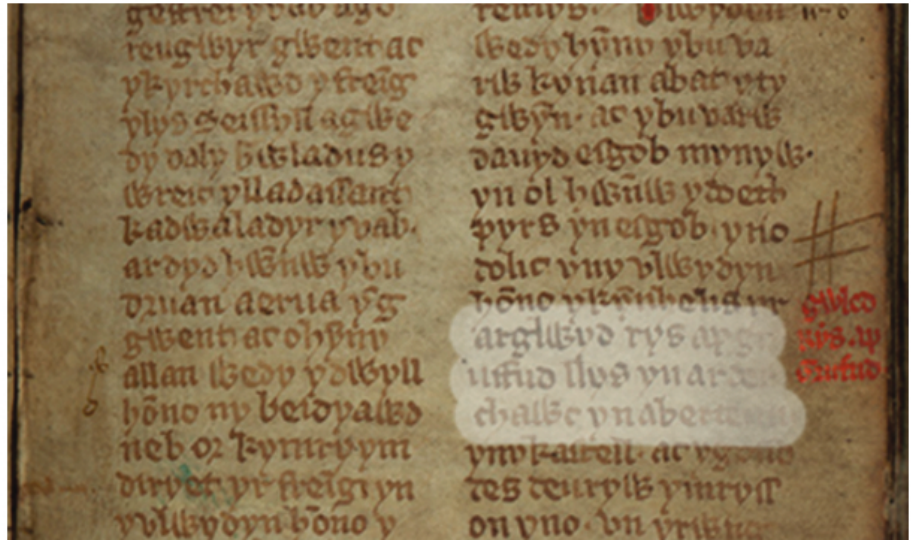 reugwyr gwent ac
ykyrchawd y freig
ylys Seissyll agwe
dy daly Gwladus y
wreic ylladassant
kadwaladyr y vab.
ar dyd hwnnw y bu
druan aerua yg
gwent ac ohynny
allan wedy y dwyll
hōno ny beidyawd
neb or kymry ym
diryet yr freigi yn
y vlwydyn hōno y
wedy hynny y bu va
rw kynan abat y ty
gwyn. ac y bu varw
dauyd esgob mynyw.
yn ol hwnnw y doeth
pyrs yn esgob. yno
dolic yny vlwydyn
hōno y kynhelis yr
arglwyd rys ap gr
uffud llys yn ar
chawc yn aber
yny kastell. ac y go
tes deuryw ymryss
on yno. vn yrwng
gwled
rys. ap
Gruffud